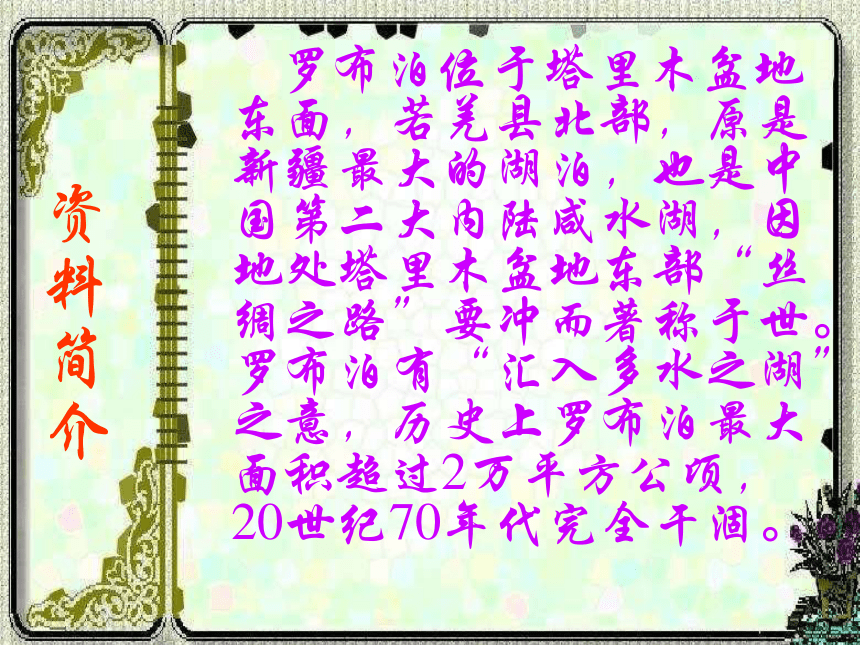 资料简介
罗布泊位于塔里木盆地
东面，若羌县北部，原是
新疆最大的湖泊，也是中
国第二大内陆咸水湖，因
地处塔里木盆地东部“丝
绸之路”要冲而著称于世。
罗布泊有“汇入多水之湖”
之意，历史上罗布泊最大
面积超过2万平方公项，
20世纪70年代完全干涸。